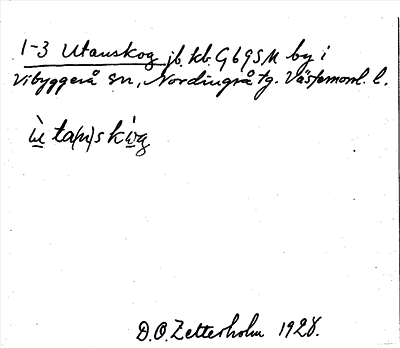 1-3 Utanskog jb. kb. G69SM by i
Vibyggerå sn, Nordingrå tg. Västernorrl. l.
ù ta(n)skòg
D.O. Zetterholm 1928.